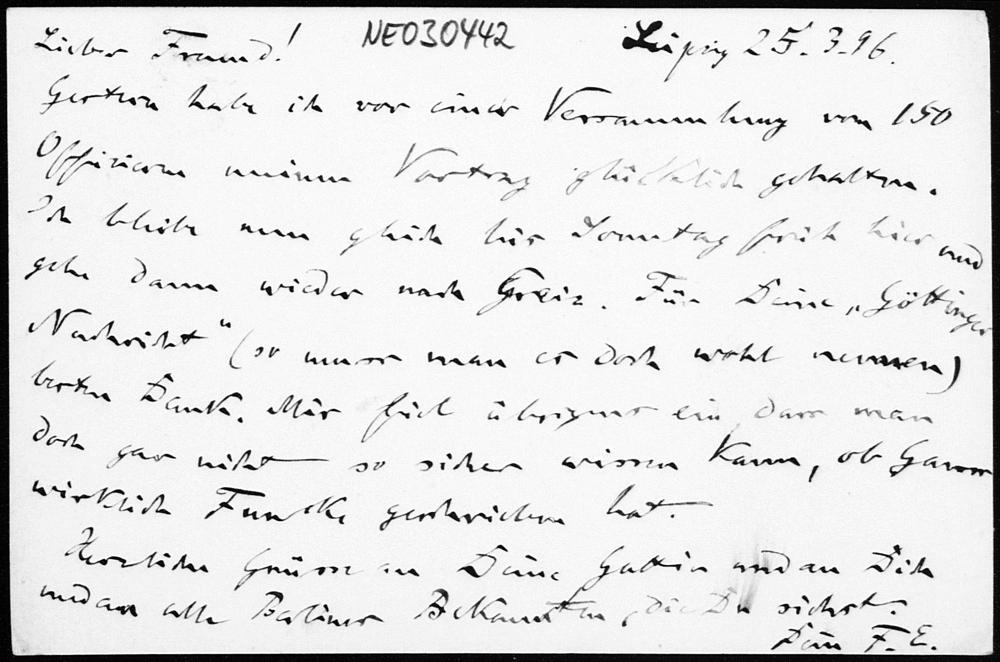 Lieber Freund! NE030442 Leipzig 25.3.96.
Gestern habe ich vor einer Versammlung von 150
Offizieren meinen Vortrag glücklich gehalten.
Ich bleibe nun gleich bis Sonntag früh hier und
gehe dann wieder nach Greiz. Für Deine „Göttinger
Nachricht“ (so muss man es doch wohl nennen)
besten Dank. Mir fiel übrigens ein, dass man
doch gar nicht so sicher wissen kann, ob Gauss
wirklich Funcke geschrieben hat.
Herzliche Grüsse an Deine Gattin und an Dich
und an alle Berliner Bekannten, die Du siehst.
Dein F. E.